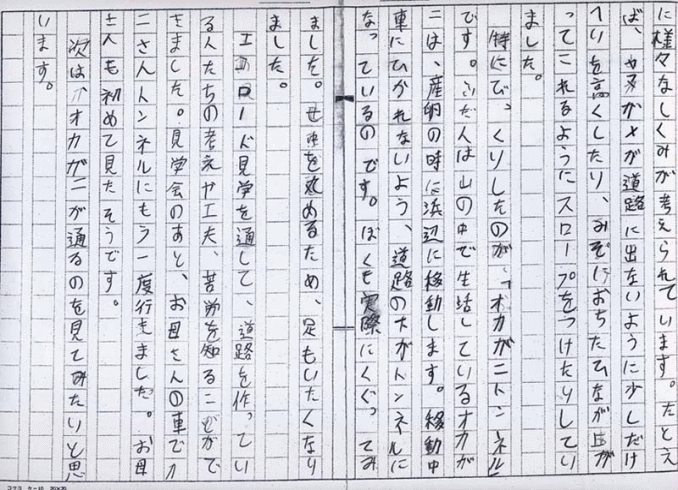 に様々なしくみが考えられています。たとえ
ば、カメが道路に出ないように少しだけ
へいを高くしたり、みぞにおちたひなが上が
ってこれるようにスロープをつけたりしてい
ました。
特にびっくりしたのが、「オカガニトンネル」
です。ふだんは山の中で生活しているオカガ
ニは、産卵の時に浜辺に移動します。移動中
車にひかれないよう、道路の下がトンネルに
なっているのです。ぼくも実際にくぐってみ
ました。せ中を丸めるため、足もいたくなり
ました。
エコロード見学を通して、道路を作ってい
る人たちの考えや工夫、苦労を知ることがで
きました。見学会のあと、お母さんの車でカ
ニさんトンネルにもう一度行きました。お母
さんも初めて見たそうです。
次は、オカガニが通るのを見てみたいと思
います。